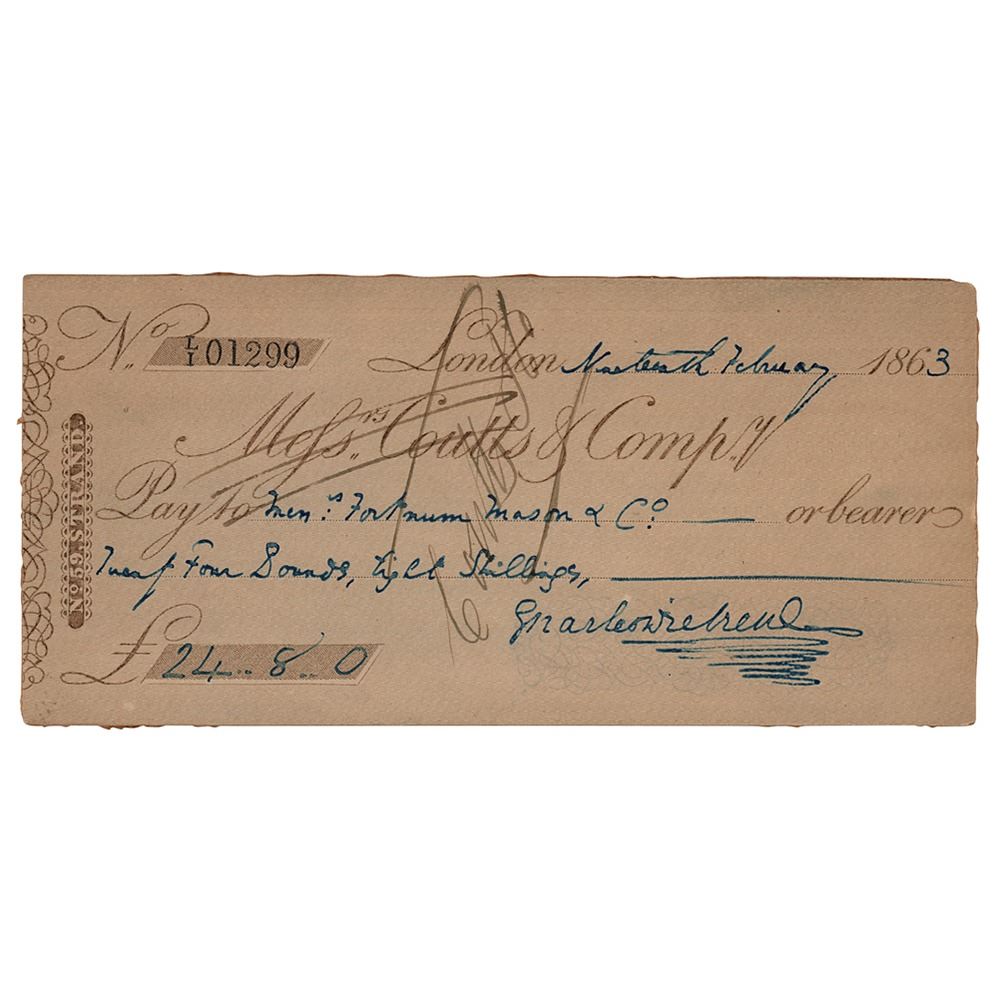 No. L/1 01299
London Nineteenth February 1863
Messrs Coutts & Compy.
Pay to Messrs. Fortnum Mason & Co. or bearer
Twenty Four Pounds, Eight Shillings,
£ 24..8..0
No. 59, STRAND